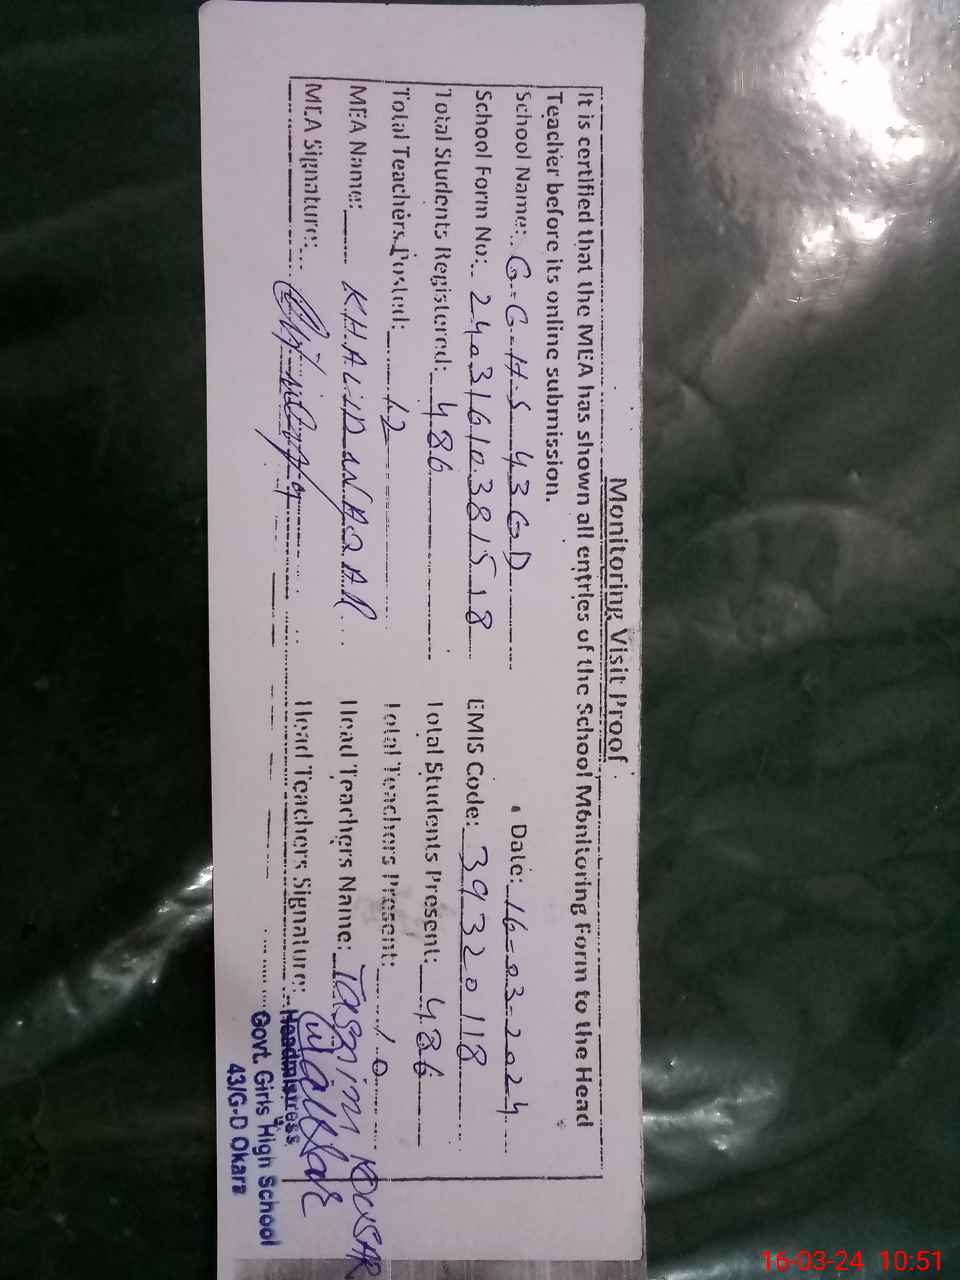 Monitoring Visit Proof
It is certified that the MEA has shown all entries of the School Monitoring Form to the Head
Teacher before its online submission.
School Name: G-G-H-S 43 GD Date: 16-03-2024
School Form No: EMIS Code: 39320118
Total Students Registered: 486 Total Students Present: 486
Total Teachers Posted: 12 Total Teachers Present: 10
MEA Name: KHALID Head Teachers Name: Tasnim KOUSAR
MEA Signature: Head Teachers Signature:
Headmistress
Govt. Girls High School
43/G-D Okara
16-03-24 10:51